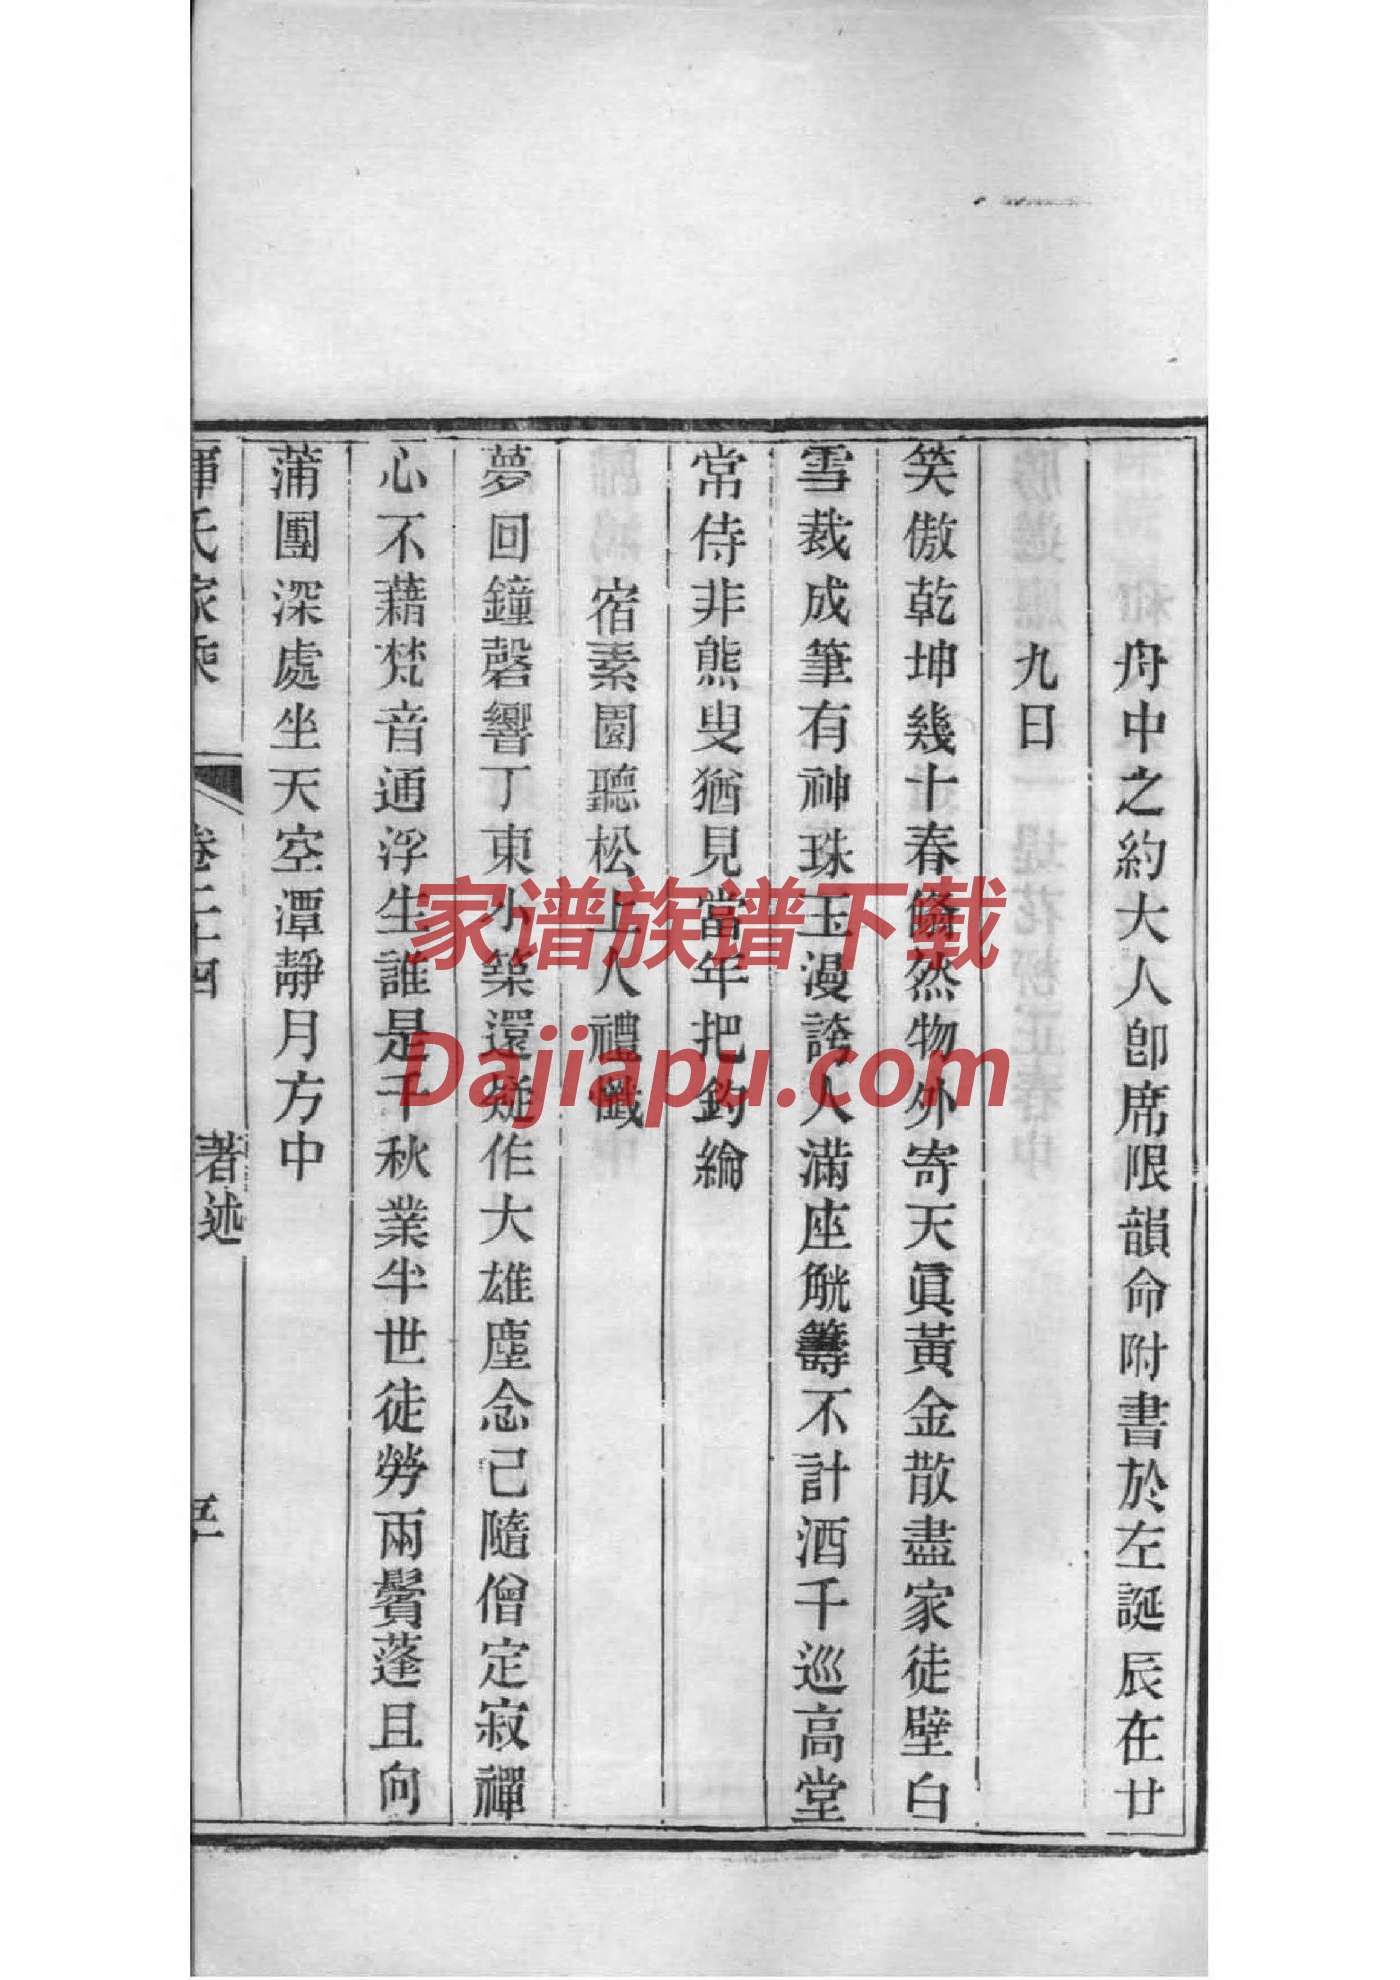 舟中之約大人卽席限韻命附書於左誕辰在廿
九日
笑傲乾坤幾十春翛然物外寄天眞黃金散盡家徒壁白
雪裁成筆有神珠玉漫誇人滿座觥籌不計酒千巡高堂
常侍非熊叟猶見當年把釣綸
宿素園聽松上人禮懺
夢回鐘磬響丁東小築還疑作大雄塵念已隨僧定寂禪
心不藉梵音通浮生誰是千秋業半世徒勞兩鬢蓬且向
蒲團深處坐天空潭靜月方中
惲氏家乘 卷二十四 著述
家谱族谱下载
Dajiapu.com